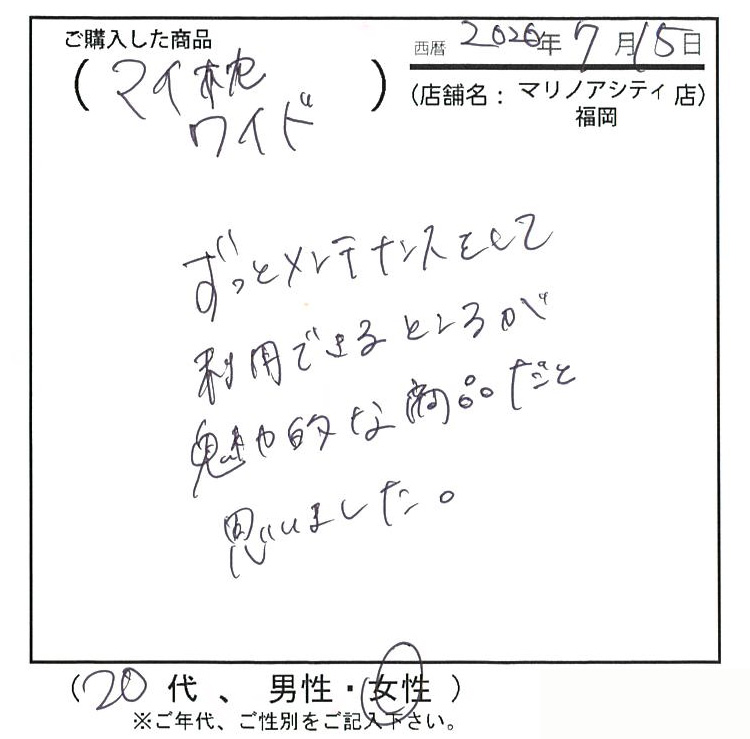 ご購入した商品
西暦 2020年7月15日
(マイ枕
ワイド)
(店舗名：マリノアシティ福岡 店)
ずっとメンテナンスをして
利用できるところが
魅力的な商品だと
思いました。
(20代、男性・女性)
※ご年代、ご性別をご記入下さい。